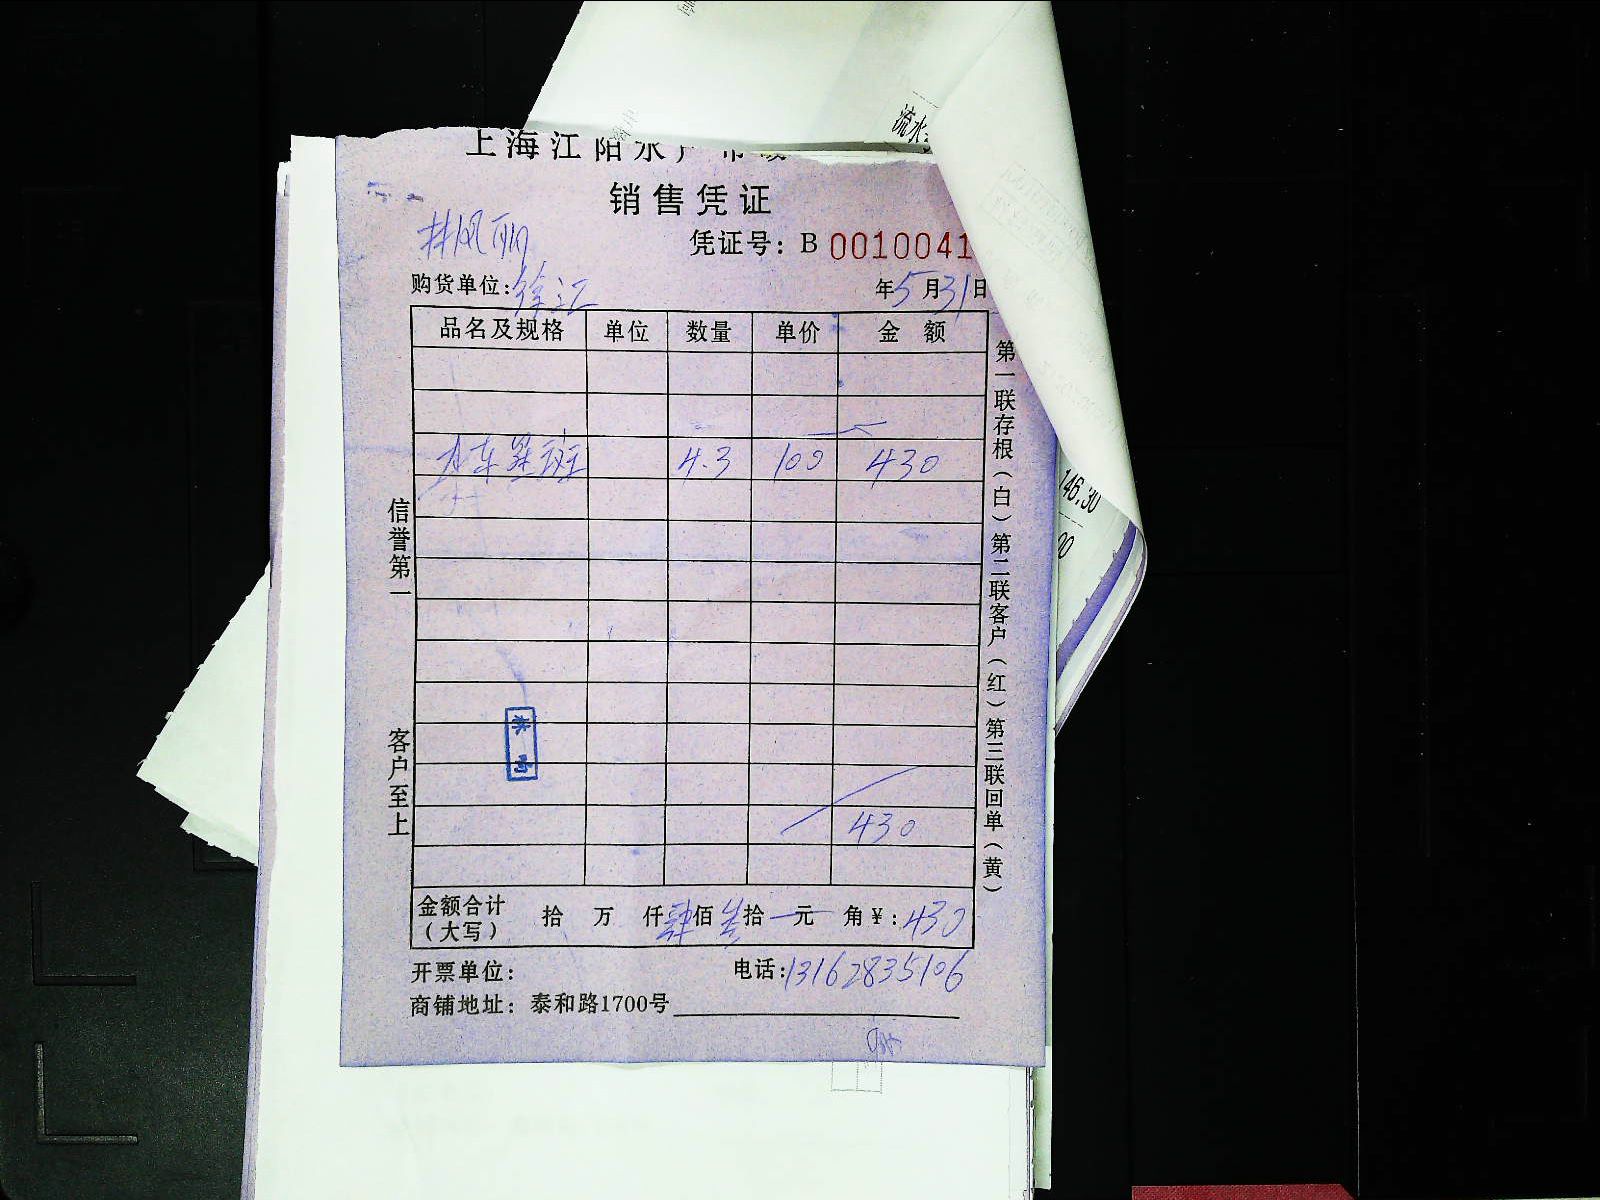 上海江阳水产市场
销售凭证
林凤丽
凭证号：B 0010041
购货单位：徐汇
年5月31日
品名及规格 单位 数量 单价 金额
东星斑 4.3 100 430
430
金额合计（大写） 拾 万 仟肆佰叁拾 元 角¥：430
开票单位： 电话：13162835106
商铺地址：泰和路1700号
信誉第一 客户至上
第一联存根（白）第二联客户（红）第三联回单（黄）
流水
146.30
00